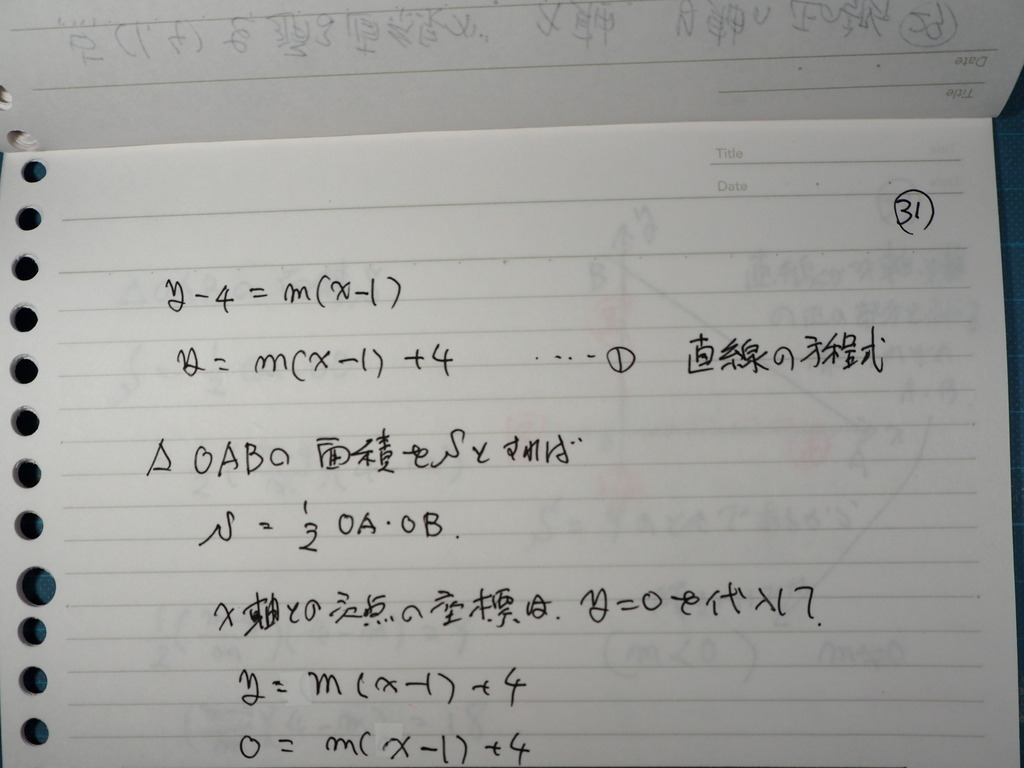 Title
Date
Title
Date
㉛
y-4=m(x-1)
y=m(x-1)+4 ‥‥① 直線の方程式
△OABの面積をSとすれば
S=1/2 OA・OB.
x軸との交点の座標は、y=0を代入して、
y=m(x-1)+4
0=m(x-1)+4